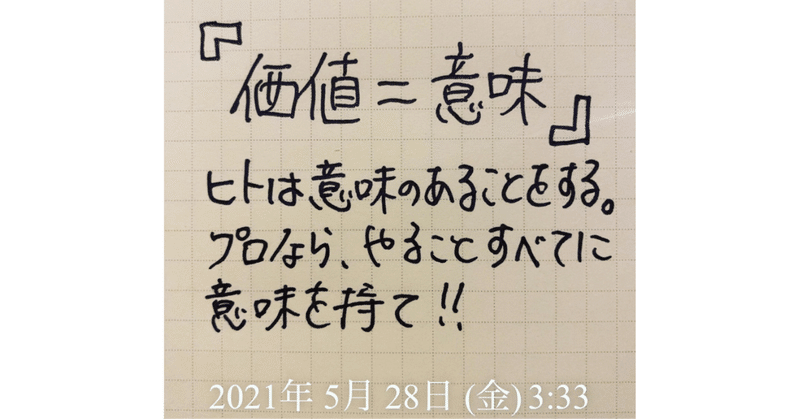 『価値=意味』
ヒトは意味のあることをする。
プロなら、やることすべてに
意味を持て!!
2021年 5月 28日 (金) 3:33